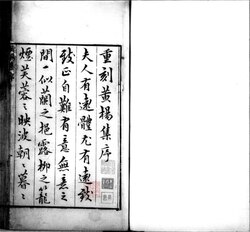 重刻黄楊集序
夫人有逺體尤有逺致
致正自難有意無意之
間一似蘭之挹露柳之籠
煙芙蓉之映波朝之暮之